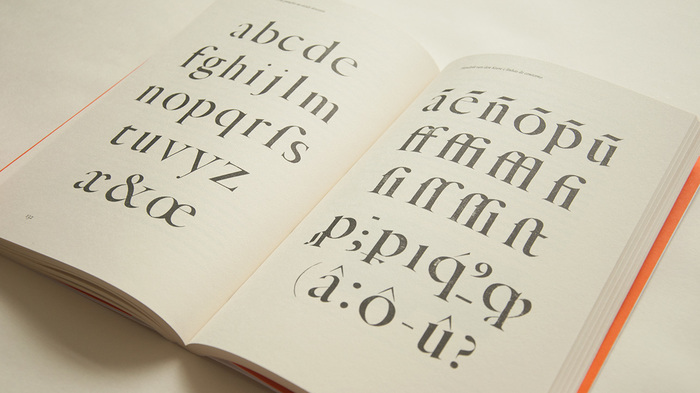 abcde
fghijlm
nopqrſs
tuvyz
æ&œ
āēñōp̄ū
ff ffi ffl fi
ſi ſſ ſſi ſt
(â:ô-û?